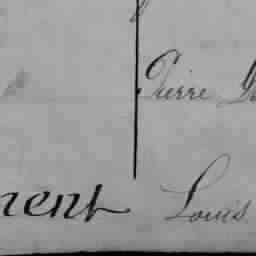 Pierre
nent Louis